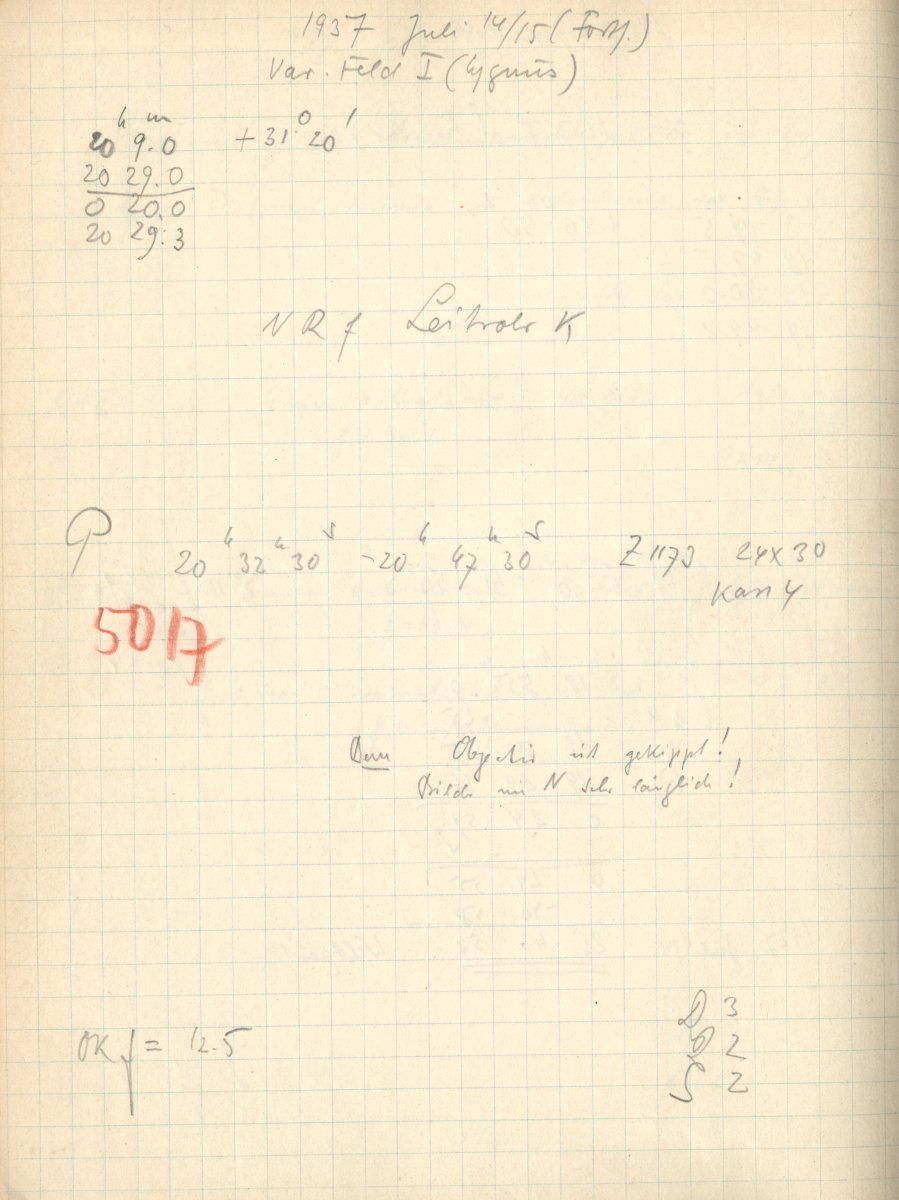 1937 Juli 14/15 (Forts.)
Var. Feld I (Cygnus)
20h 9.m0 +31.°20'
20 29.0
0 20.0
20 29.3
N R f Leitrohr K
P 20h 32m 30s - 20h 47m 30s Z 1179 24x30
Kass 4
5017
Bem Objectiv ist gekippt!
Bilder im N sehr länglich!
D 3
OK f = 12.5 2
S 2